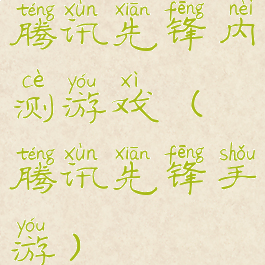 téng xùn xiān fēng nèi
腾讯先锋内
cè yóu xì
测游戏（
téng xùn xiān fēng shǒu
腾讯先锋手
yóu
游）